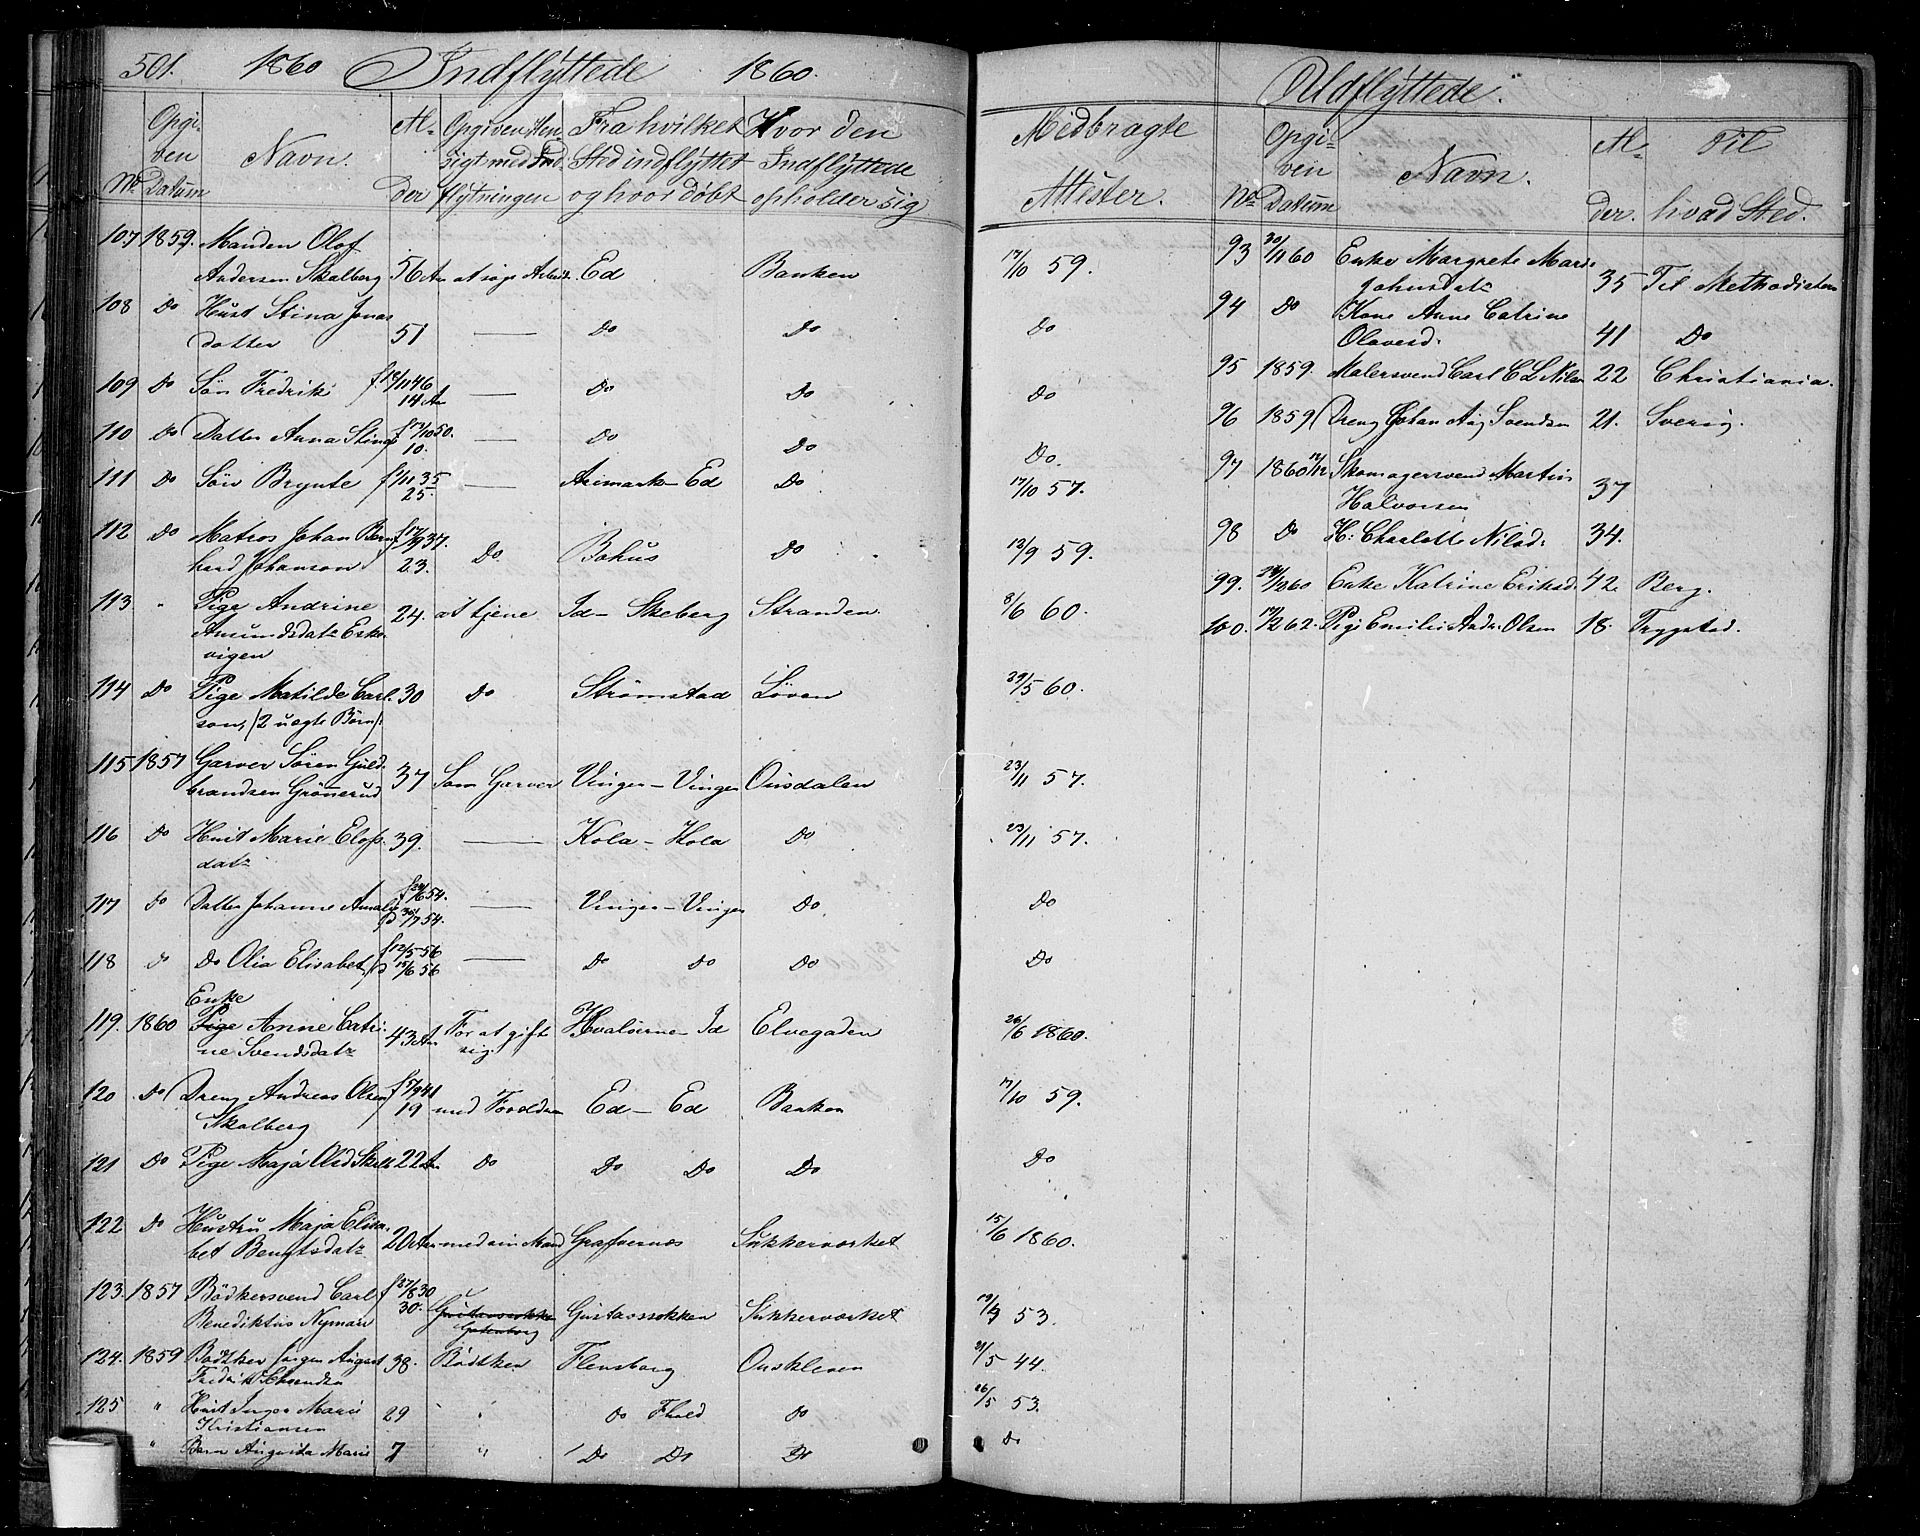 501. 1860 Indflyttede 1860.
Udflyttede.
No Opgiven Datum Navn. Alder Opgiven Hensigt med Indflytningen Fra hvilket Sted indflyttet og hvor døbt Hvor den Indflyttede opholder sig Medbragte Attester.
107 1859. Manden Olof
Andersen Skalberg 56 Aar at søge Arbeide Ed Banken 17/10 59.
108 Do Hust Stina Jonas
datter 51 — Do Do Do
109 Do Søn Fredrik f 18/11 46
14 Aar — Do Do Do
110 Do Datter Anna Stina f 17/10 50.
10. — Do Do Do.
111 Do Søn Brynte f 4/11 35
25. — Aremark - Ed Do 17/10 57.
112 Do Matros Johan Bern
hard Johanson f 17/9 37.
23. Do Bohus Do 12/9 59.
113 " Pige Andrine
Amundsdatr Eske
vigen 24. at tjene Id - Skeberg Stranden. 8/6 60.
114 Do Pige Matilde Carl
son, (2 uægte Børn) 30 Do Strømstad Løven 29/5 60.
115 1857 Garver Søren Guld
brandsen Grønnerud 37 Som Garver Vinger - Vinger Ousdalen 23/11 57.
116 Do Hust Marie Elofs
datr 39. — Kola - Kola Do 23/11 57.
117 do Datter Johanne Amalie f 29/6 54.
d 30/7 54. — Vinger - Vinger Do Do
118 do Do Olia Elisabet f 12/5 56
d 15/6 56 — Do Do Do Do
Enke
119. 1860 Pige Anne Catri
ne Svendsdatr 43 Aar For at gifte
sig. Hvaløerne - Id Elvegaden 26/6 1860.
120 Do Dreng Andreas Olsen
Skalberg f 7/9 41
19 med Forældrene Ed - Ed Banken 17/10 59.
121 Do Pige Maja Olsd Skalb 22 Aar Do Do Do Do Do
122 Do Hustru Maja Elisa
bet Bengtsdatr 20 Aar med sin Mand Grafvernæs Sukkerværket 15/6 1860.
123. 1857 Bødkersvend Carl
Benediktus Nyman f 27/8 30
30. Gustavssokken
Gotenborg Gustavssokken Sukkerværket 19/9 53.
124. 1859 Bødtker Jørgen August
Fredrik 38. Bødtker Flensborg Ouskleven 21/5 44.
125 " Hust Inger Marie
Kristiansen 29 " do Fhald do 26/5 53.
" Barn Augusta Marie 7 " Do Do Do Do
No Opgiven Datum Navn. Alder. Til hvad Sted.
93 30/11 60 Enke Margrete Marie
Johnsdatr 35 Til Methodisterne
94 Do Kone Anne Catrine
Olavesd. 41 Do
95 1859. Malersvend Carl C L Nilsen 22 Christiania.
96 1859 Dreng Johan Aug Svendsen 21. Sverig.
97 1860 12/12 Skomagersvend Martin
Halvorsen 37
98 Do H: Charlotte Nilsd: 34.
99. 24/12 60 Enke Katrine Eriksd. 42. Berg.
100. 17/2 62. Pige Emilie Andr. Olsen 18. Trygstad.